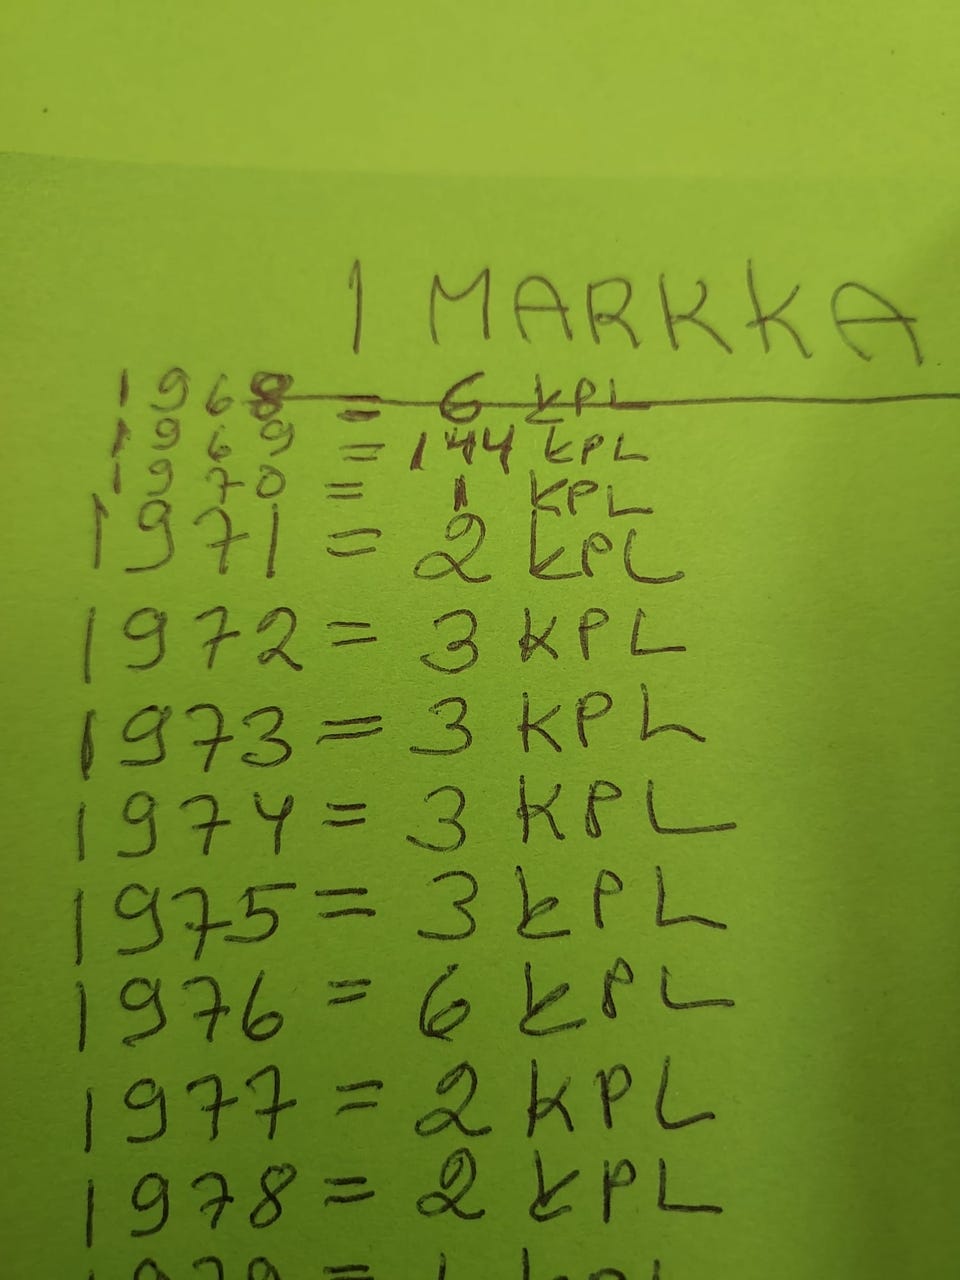 1 MARKKA
1968 = 6 KPL
1969 = 144 KPL
1970 = 1 KPL
1971 = 2 KPL
1972 = 3 KPL
1973 = 3 KPL
1974 = 3 KPL
1975 = 3 KPL
1976 = 6 KPL
1977 = 2 KPL
1978 = 2 KPL
1979 = KPL